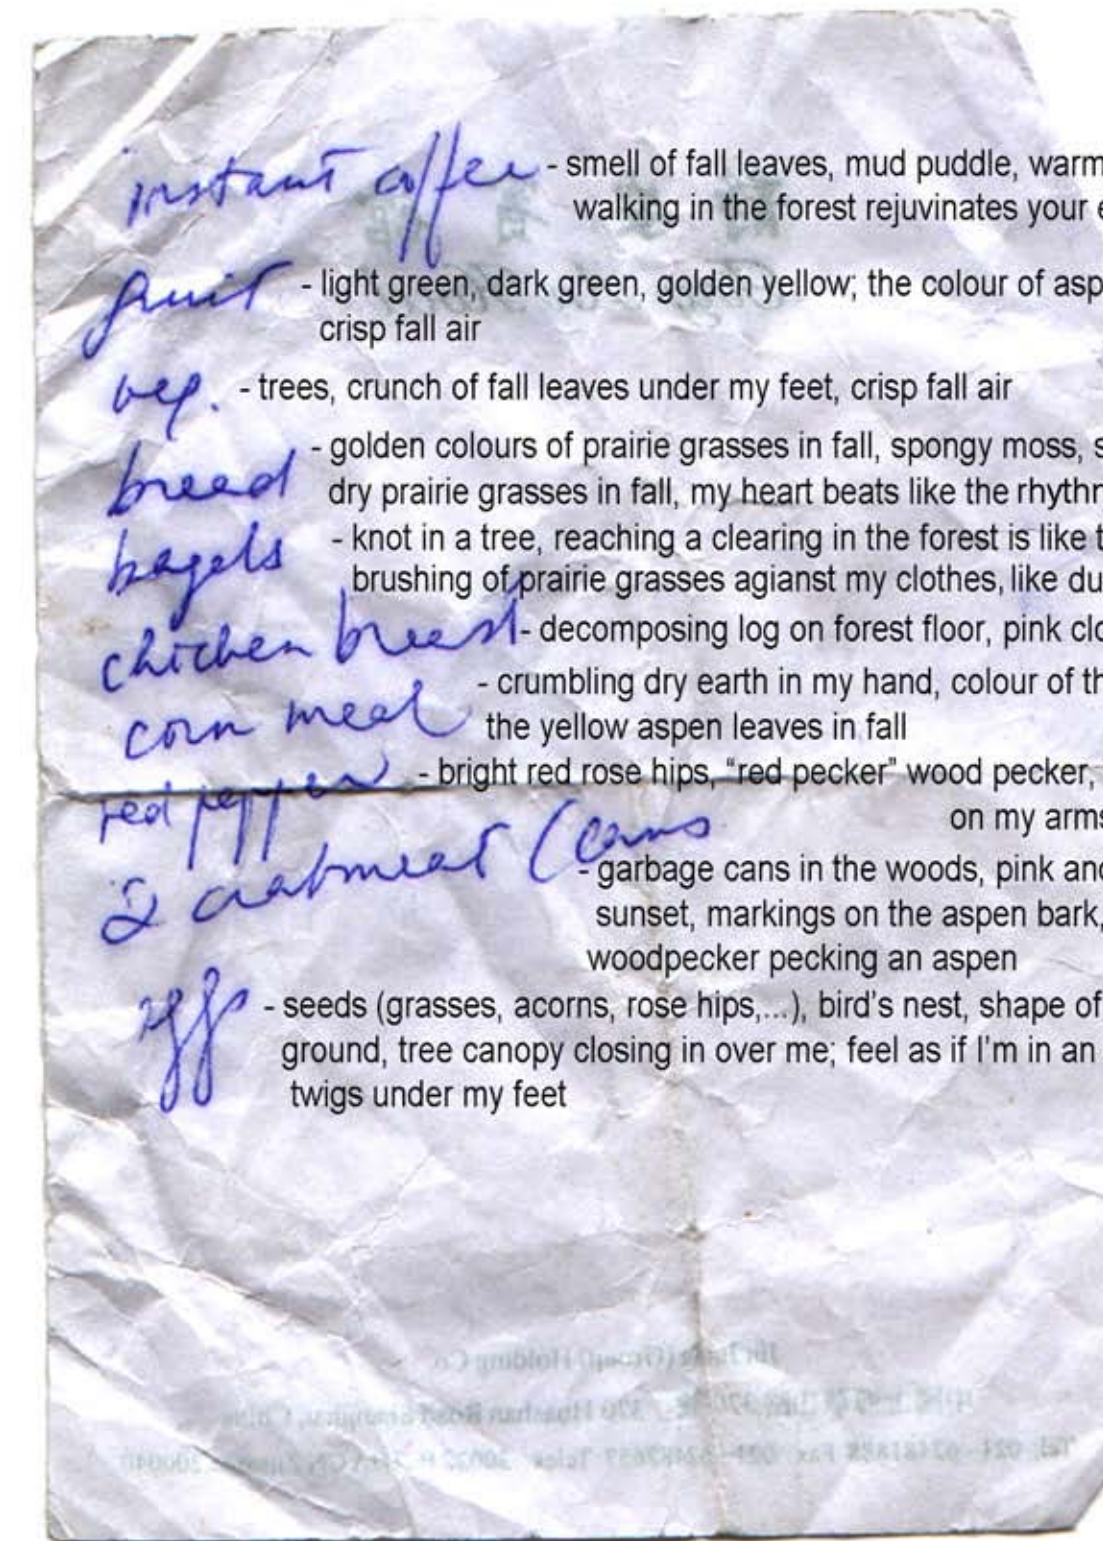 instant coffee - smell of fall leaves, mud puddle, warm
walking in the forest rejuvinates your
fruit - light green, dark green, golden yellow; the colour of asp
crisp fall air
veg. - trees, crunch of fall leaves under my feet, crisp fall air
bread - golden colours of prairie grasses in fall, spongy moss, s
dry prairie grasses in fall, my heart beats like the rhyth
bagels - knot in a tree, reaching a clearing in the forest is like t
brushing of prairie grasses agianst my clothes, like du
chicken breast - decomposing log on forest floor, pink clo
corn meal - crumbling dry earth in my hand, colour of th
the yellow aspen leaves in fall
red pepper - bright red rose hips, "red pecker" wood pecker,
on my arms
2 crabmeat (cans - garbage cans in the woods, pink and
sunset, markings on the aspen bark,
woodpecker pecking an aspen
eggs - seeds (grasses, acorns, rose hips,...), bird's nest, shape of
ground, tree canopy closing in over me; feel as if I'm in an
twigs under my feet
(Group) Holding Co
370 Huashan Road Shanghai, China